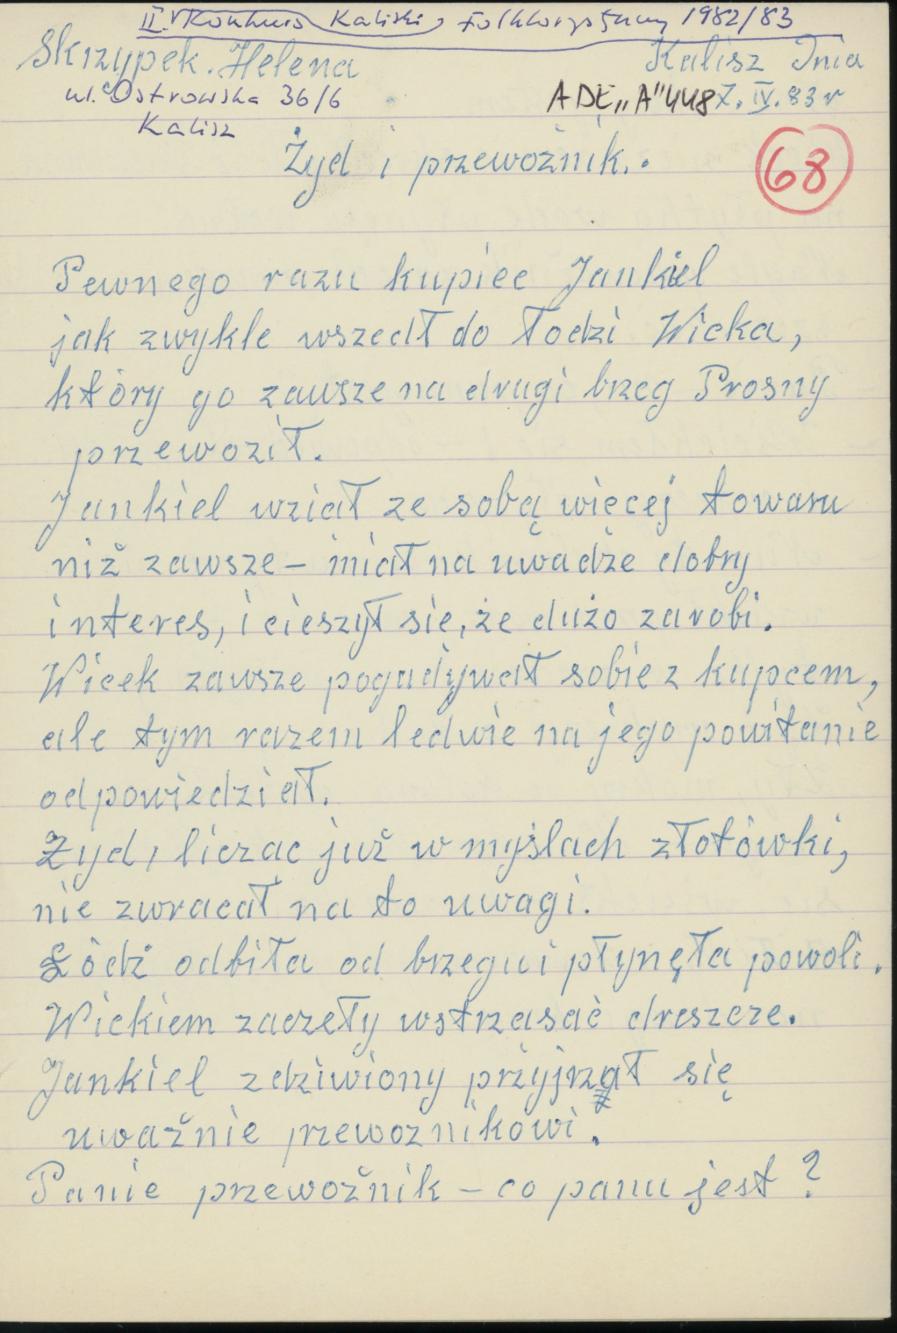 II Konkurs Kaliski Folklorystyczny 1982/83
Skrzypek. Helena Kalisz Dnia
ul. Ostrowska 36/6 ADE „A" 448 7. IV. 83 r
Kalisz
Żyd i przewoźnik.
68
Pewnego razu kupiec Jankiel
jak zwykle wszedł do łodzi Wicka,
który go zawsze na drugi brzeg Prosny
przewoził.
Jankiel wział ze sobą więcej towaru
niż zawsze – miał na uwadże dobry
interes, i cieszył sie, że dużo zarobi.
Wicek zawsze pogadywał sobie z kupcem,
ale tym razem ledwie na jego powitanie
odpowiedział.
Żyd, liczac już w myślach złotówki,
nie zwracał na to uwagi.
Łódź odbiła od brzegu i płynęła powoli.
Wickiem zaczeły wstrzasać dreszcze.
Jankiel zdziwiony przyjrzał się
uważnie przewoznikowi.
Panie przewoźnik – co panu jest?